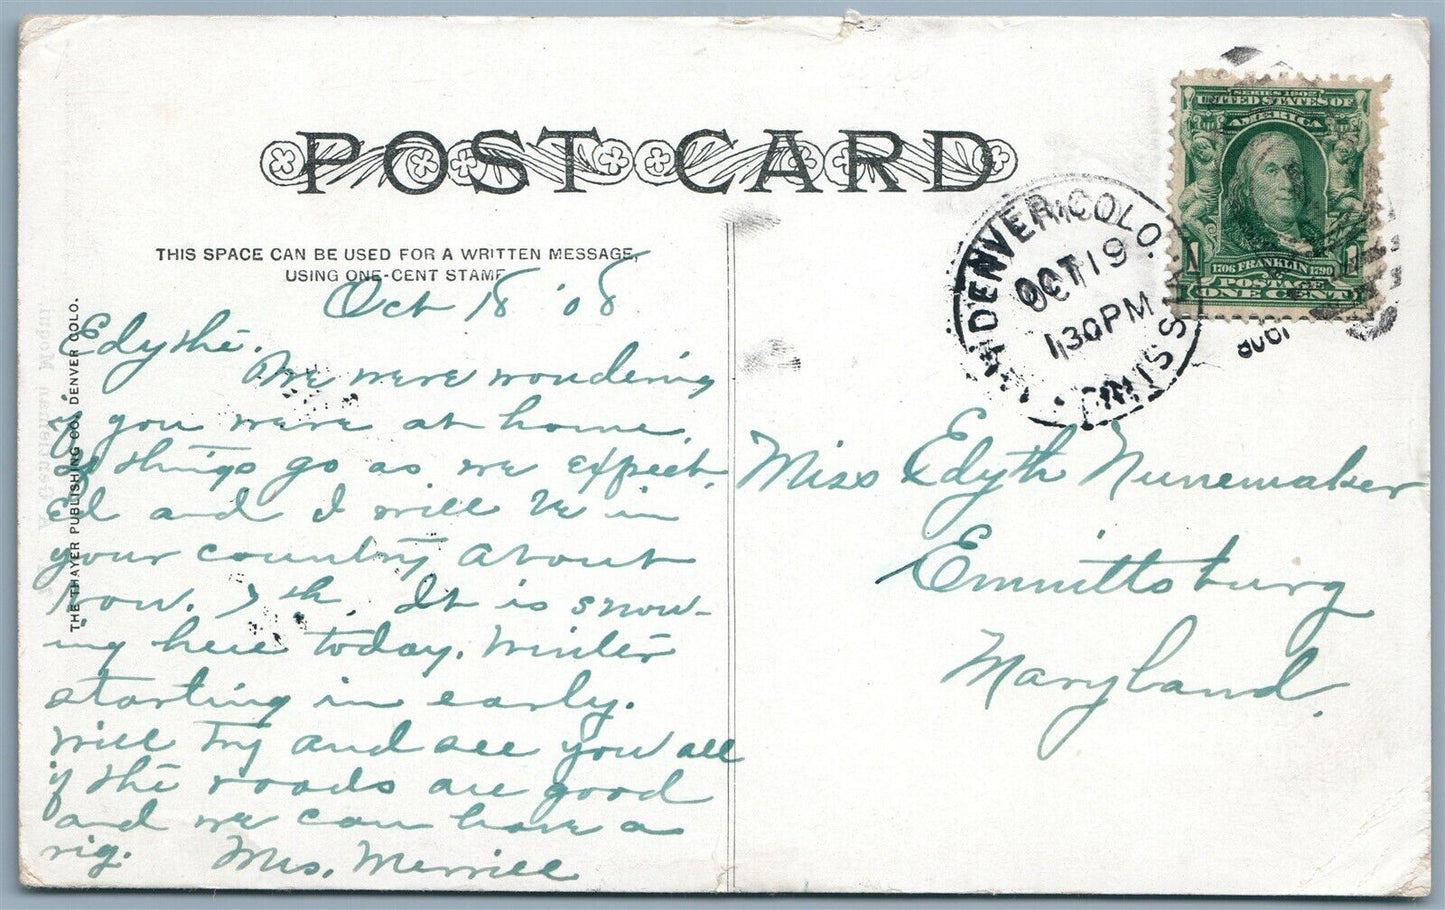 POST CARD
THIS SPACE CAN BE USED FOR A WRITTEN MESSAGE,
USING ONE-CENT STAMP
Oct 18 '08
Edythe.
We were wondering
if you were at home.
If things go as we expect,
Ed and I will be in
your country about
Nov. 7th. It is snow-
ing here today. Winter
starting in early.
Will try and see you all
if the roads are good
and we can have a
rig. Mrs. Merrill
THE THAYER PUBLISHING CO. DENVER COLO.
DENVER, COLO.
OCT 19
130PM
1908
SERIES 1902
UNITED STATES OF
AMERICA
1 1
1706 FRANKLIN 1790
POSTAGE
ONE CENT
Miss Edyth Nunemaker
Emmittsburg
Maryland.